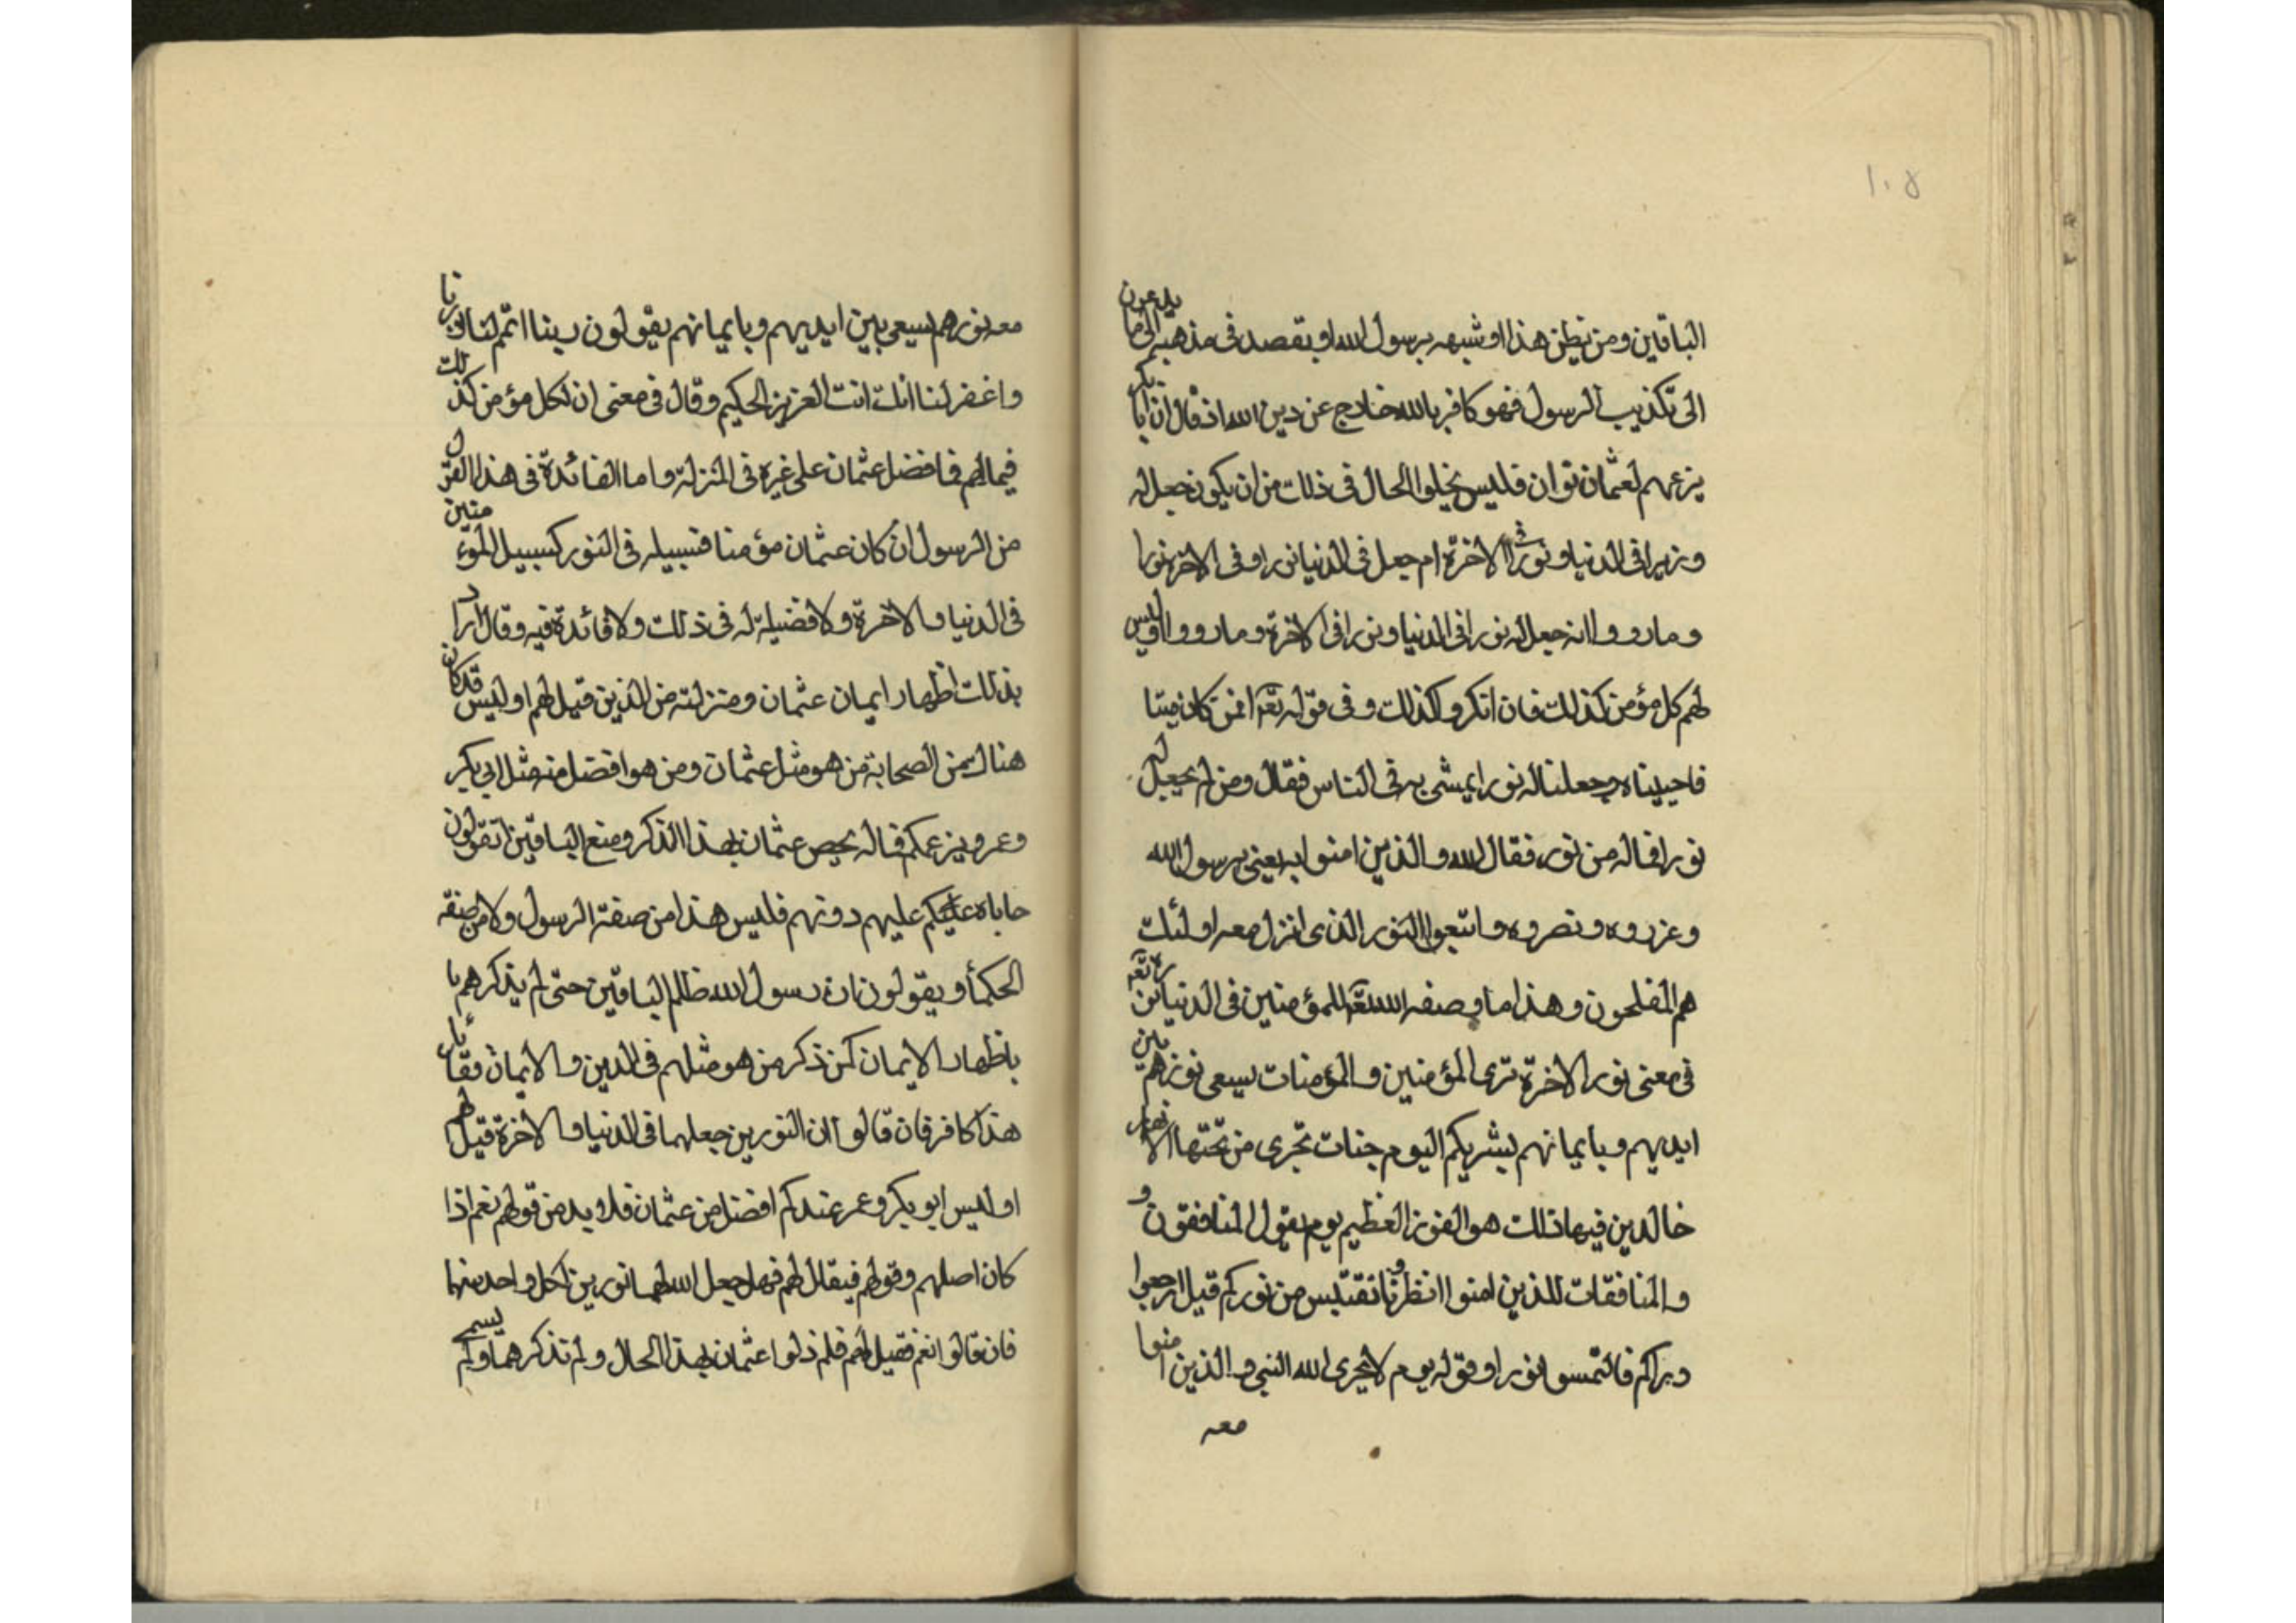 ١٠٨
الباقين ومن يظن هذا او شبهه برسول الله او يقصد فى مذهبهم الى ما يدعون
الى تكذيب الرسول فهو كافر بالله خارج عن دين الله اذ قال ان ابا بكر
يزعمهم لعثمان نوران فليس يخلوا الحال فى ذلك من ان يكون جعل له
وزيرا فى الدنيا و نورا فى الاخرة ام جعل فى الدنيا نورا و فى الاخرة نورا
و ما رووا انه جعل له نورا فى الدنيا و نورا فى الاخرة و ما رووا اوليس
لهم كل مؤمن كذلك فان انكروا كذلك و فى قوله تعه افمن كان ميتا
فاحييناه وجعلنا له نورا يمشى به فى الناس فقال ومن لم يجعل له
نورا فماله من نور، فقال الله و الذين امنوا به يعنى برسول الله
و عزروه و نصروه و اتبعوا النور الذى انزل معه اولئك
هم المفلحون و هذا ما وصفه الله تعه للمؤمنين فى الدنيا
فى معنى نور الاخرة ترى المؤمنين و المؤمنات يسعى نورهم بين
ايديهم و بايمانهم بشريكم اليوم جنات تجرى من تحتها الانهار
خالدين فيها ذلك هو الفوز العظيم يوم يقول المنافقون و
و المنافقات للذين امنوا انظرونا نقتبس من نوركم قيل ارجعوا
وراكم فالتمسوا نورا و قوله يوم لا يخزى الله النبى و الذين امنوا
معه
معه نورهم يسعى بين ايديهم و بايمانهم يقولون ربنا اتمم لنا نورنا
واغفر لنا انك انت العزيز الحكيم و قال فى معنى ان لكل مؤمن كذلك
فيما لهم فما فضل عثمان على غيره فى المنزلة و اما الفائدة فى هذا القول
من الرسول ان كان عثمان مؤمنا فسبيله فى النور كسبيل المؤمنين
فى الدنيا و الاخرة و لا فضيلة له فى ذلك و لا فائدة فيه و قال اراد
بذلك اظهار ايمان عثمان و منزلته من الذين قيل لهم او ليس قد كان
هناك من الصحابة من هو مثل عثمان و من هو افضل منه مثل ابى بكر
و عمر و بزعمكم فماله يخص عثمان بهذا الذكر و منع الباقين اتقولون
حاباه عليكم عليهم دونهم فليس هذا من صفة الرسول و لا من صفة
الحكماء و يقولون ان رسول الله ظلم الباقين حتى لم يذكرهم با
باظهار الايمان كمن ذكر من هو مثلهم فى الدين و الايمان
هذا كافر فان قالوا ان النورين جعلهما فى الدنيا و الاخرة قيل لهم
اوليس ابو بكر و عمر عندكم افضل من عثمان فلا بد من قولهم نعم اذا
كان اصلهم و قولهم فيقال لهم فهل جعل الله لهما نورين لكل واحد منهما
فان قالوا نعم فقيل لهم فلم ذلوا عثمان بهذا الحال و لم تذكرهما و لم يسم